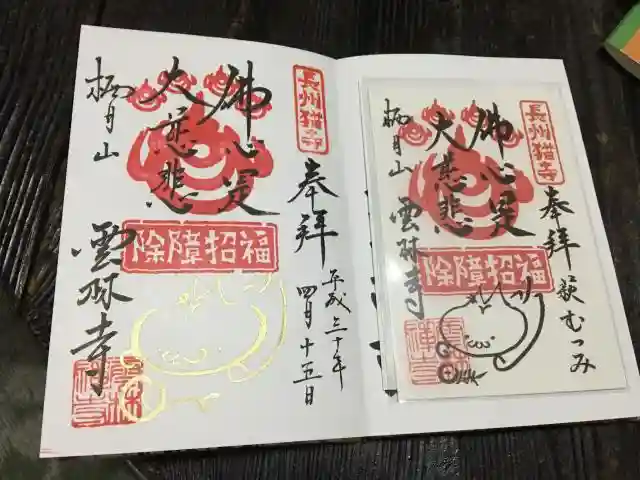 長州猫寺
奉拝
平成三十年
四月十五日
佛心是
大慈悲
除障招福
栖月山
雲林寺
雲林
禅寺
長州猫寺
奉拝
萩むつみ
佛心是
大慈悲
除障招福
栖月山
雲林寺
雲林
禅寺